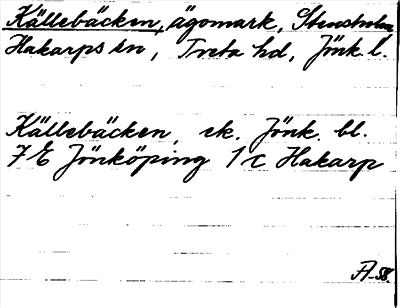 Källebäcken, ägomark, Stensholm
Hakarps sn, Tveta hd, Jönk. l.
Källebäcken, ek. Jönk. bl.
7 E Jönköping 1 c Hakarp
A-58